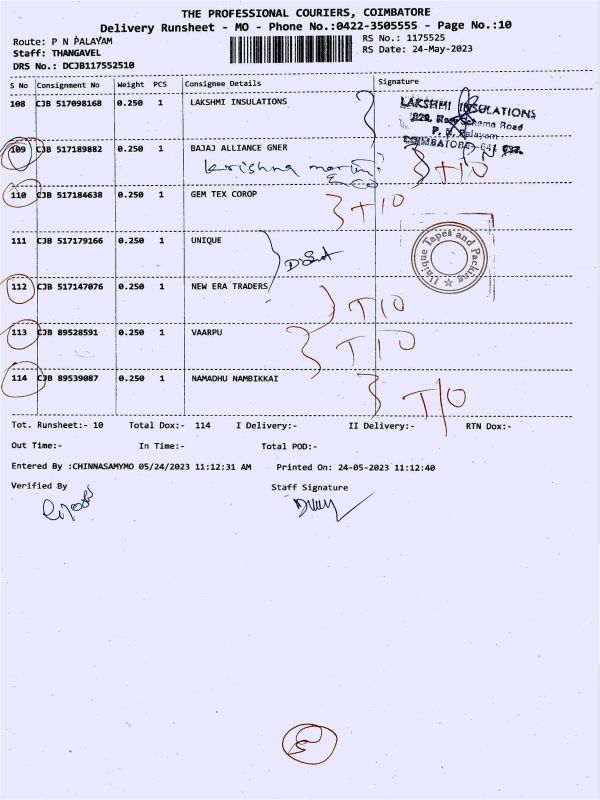 THE PROFESSIONAL COURIERS, COIMBATORE
Delivery Runsheet - MO - Phone No.:0422-3505555 - Page No.:10
Route: P N PALAYAM
RS No.: 1175525
Staff: THANGAVEL
RS Date: 24-May-2023
DRS No.: DCJB117552510
S No Consignment No Weight PCS Consignee Details Signature
108 CJB 517098168 0.250 1 LAKSHMI INSULATIONS
LAKSHMI INSULATIONS
P. N. Palayam
COIMBATORE-641 037.
109 CJB 517189882 0.250 1 BAJAJ ALLIANCE GNER
Krishna
T10
110 CJB 517184638 0.250 1 GEM TEX COROP
T10
111 CJB 517179166 0.250 1 UNIQUE
Unique Tapes and Packing
112 CJB 517147076 0.250 1 NEW ERA TRADERS
T10
113 CJB 89528591 0.250 1 VAARPU
T10
114 CJB 89539087 0.250 1 NAMADHU NAMBIKKAI
T/O
Tot. Runsheet:- 10 Total Dox:- 114 I Delivery:- II Delivery:- RTN Dox:-
Out Time:- In Time:- Total POD:-
Entered By :CHINNASAMYMO 05/24/2023 11:12:31 AM Printed On: 24-05-2023 11:12:40
Verified By Staff Signature